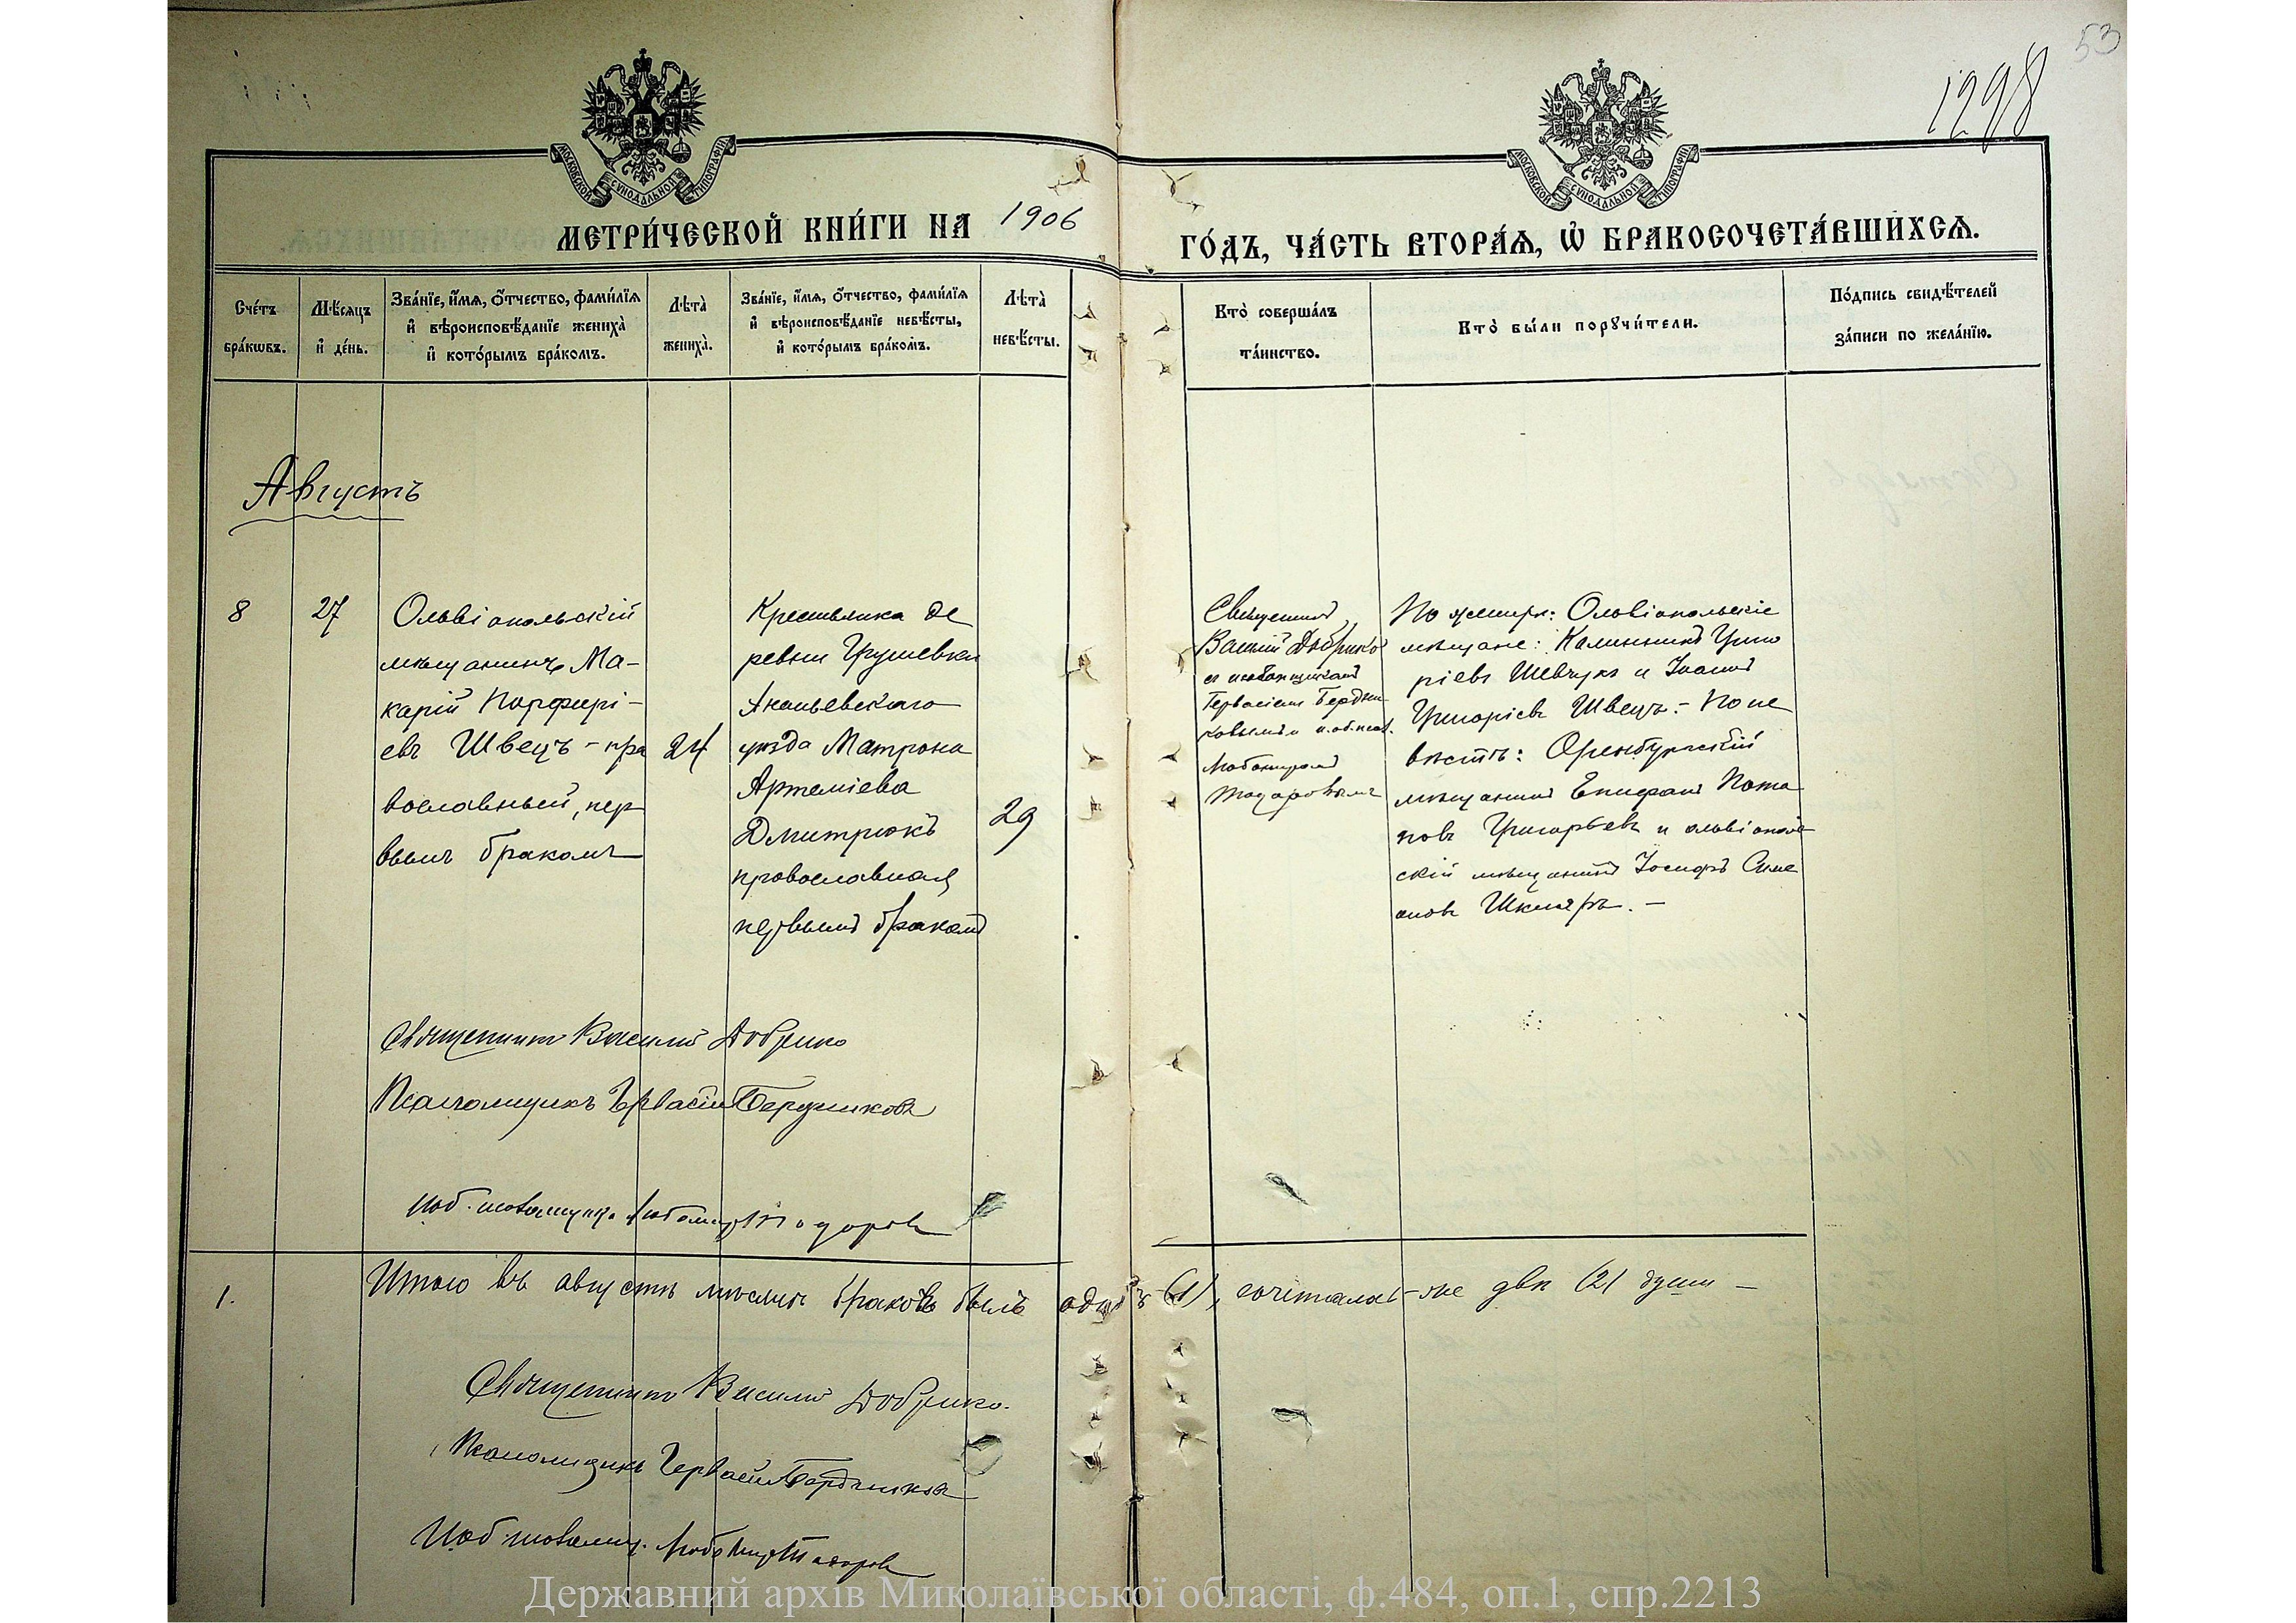 53
1298
МОСКОВСКОЙ СѴНОДАЛЬНОЙ ТИПОГРАФІИ
МОСКОВСКОЙ СѴНОДАЛЬНОЙ ТИПОГРАФІИ
МЕТРИ́ЧЕСКОЙ КНИ́ГИ НА 1906
ГО́ДЪ, ЧА́СТЬ ВТОРА́Ѧ, Ѡ҆ БРАКОСОЧЕТА́ВШИХСѦ.
Сче́тъ
бра́кѡвъ.
Мѣ́сѧцъ
и҆ де́нь.
Зва́нїе, и҆́мѧ, ѻ҆́тчество, фами́лїѧ
и҆ вѣроисповѣ́данїе жениха̀
и҆ кото́рымъ бра́комъ.
Лѣта̀
жениха̀.
Зва́нїе, и҆́мѧ, ѻ҆́тчество, фами́лїѧ
и҆ вѣроисповѣ́данїе невѣ́сты,
и҆ кото́рымъ бра́комъ.
Лѣта̀
невѣ́сты.
Кто̀ соверша́лъ
та́инство.
Кто̀ бы́ли порꙋчи́тели.
По́дпись свидѣ́телей
за́писи по жела́нїю.
Августъ
8
27
Ольвіопольскій
мѣщанинъ Ма-
карій Порфирі-
евъ Швецъ - пра
вославный, пер
вымъ бракомъ
24
Крестьянка де
ревни Грушевки
Ананьевскаго
уѣзда Матрона
Артеміева
Дмитрюкъ
православная,
первымъ бракомъ
29
Священникъ
Василій Добрико
съ псаломщикомъ
Гервасіемъ Бердни-
ковымъ и
Тодоровымъ
По женихѣ: Ольвіопольскіе
мѣщане: Каллиникъ Григо
ріевъ Шевчукъ и Іоаннъ
Григоріевъ Швецъ. - По не
вѣстѣ: Оренбургскій
мѣщанинъ Епифанъ Пота
повъ Григорьевъ и ольвіополь
скій мѣщанинъ Іосифъ Симе
оновъ Шкляръ. -
Священникъ Василій Добрико
Псаломщикъ Гервасій Бердниковъ
Тодоровъ
1.
Итого въ августѣ мѣсяцѣ браковъ былъ одинъ (1), сочеталось-же двѣ (2) души -
Священникъ Василій Добрико.
Псаломщикъ Гервасій Бердниковъ
Тодоровъ
Державний архів Миколаївської області, ф.484, оп.1, спр.2213